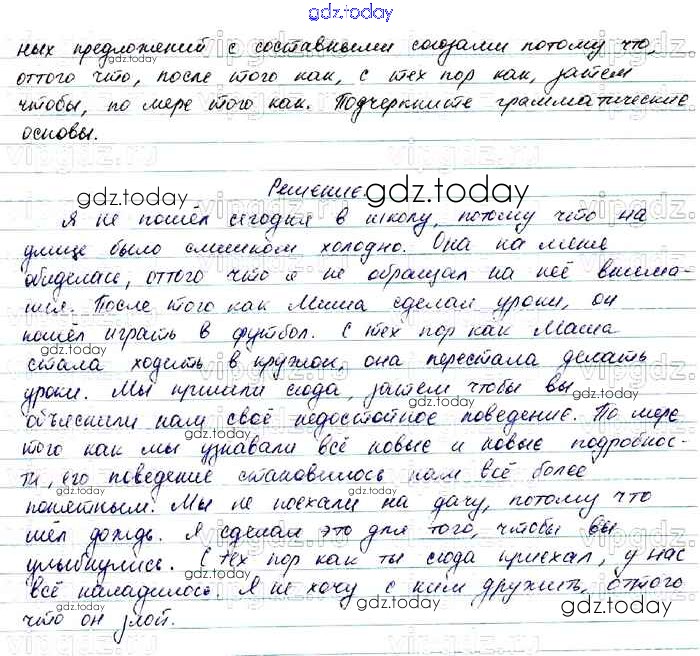 gdz.today
ных предложений с составными союзами потому что,
оттого что, после того как, с тех пор как, затем
чтобы, по мере того как. Подчеркните грамматические
основы.
Решение.
Я не пошёл сегодня в школу, потому что на
улице было слишком холодно. Она на меня
обиделась, оттого что я не обращал на неё внима-
ния. После того как Миша сделал уроки, он
пошёл играть в футбол. С тех пор как Маша
стала ходить в кружок, она перестала делать
уроки. Мы пришли сюда, затем чтобы вы
объяснили нам своё недостойное поведение. По мере
того как мы узнавали всё новые и новые подробнос-
ти, его поведение становилось нам всё более
понятным. Мы не поехали на дачу, потому что
шёл дождь. Я сделал это для того, чтобы вы
улыбнулись. С тех пор как ты сюда приехал, у нас
всё наладилось. Я не хочу с ним дружить, оттого
что он злой.